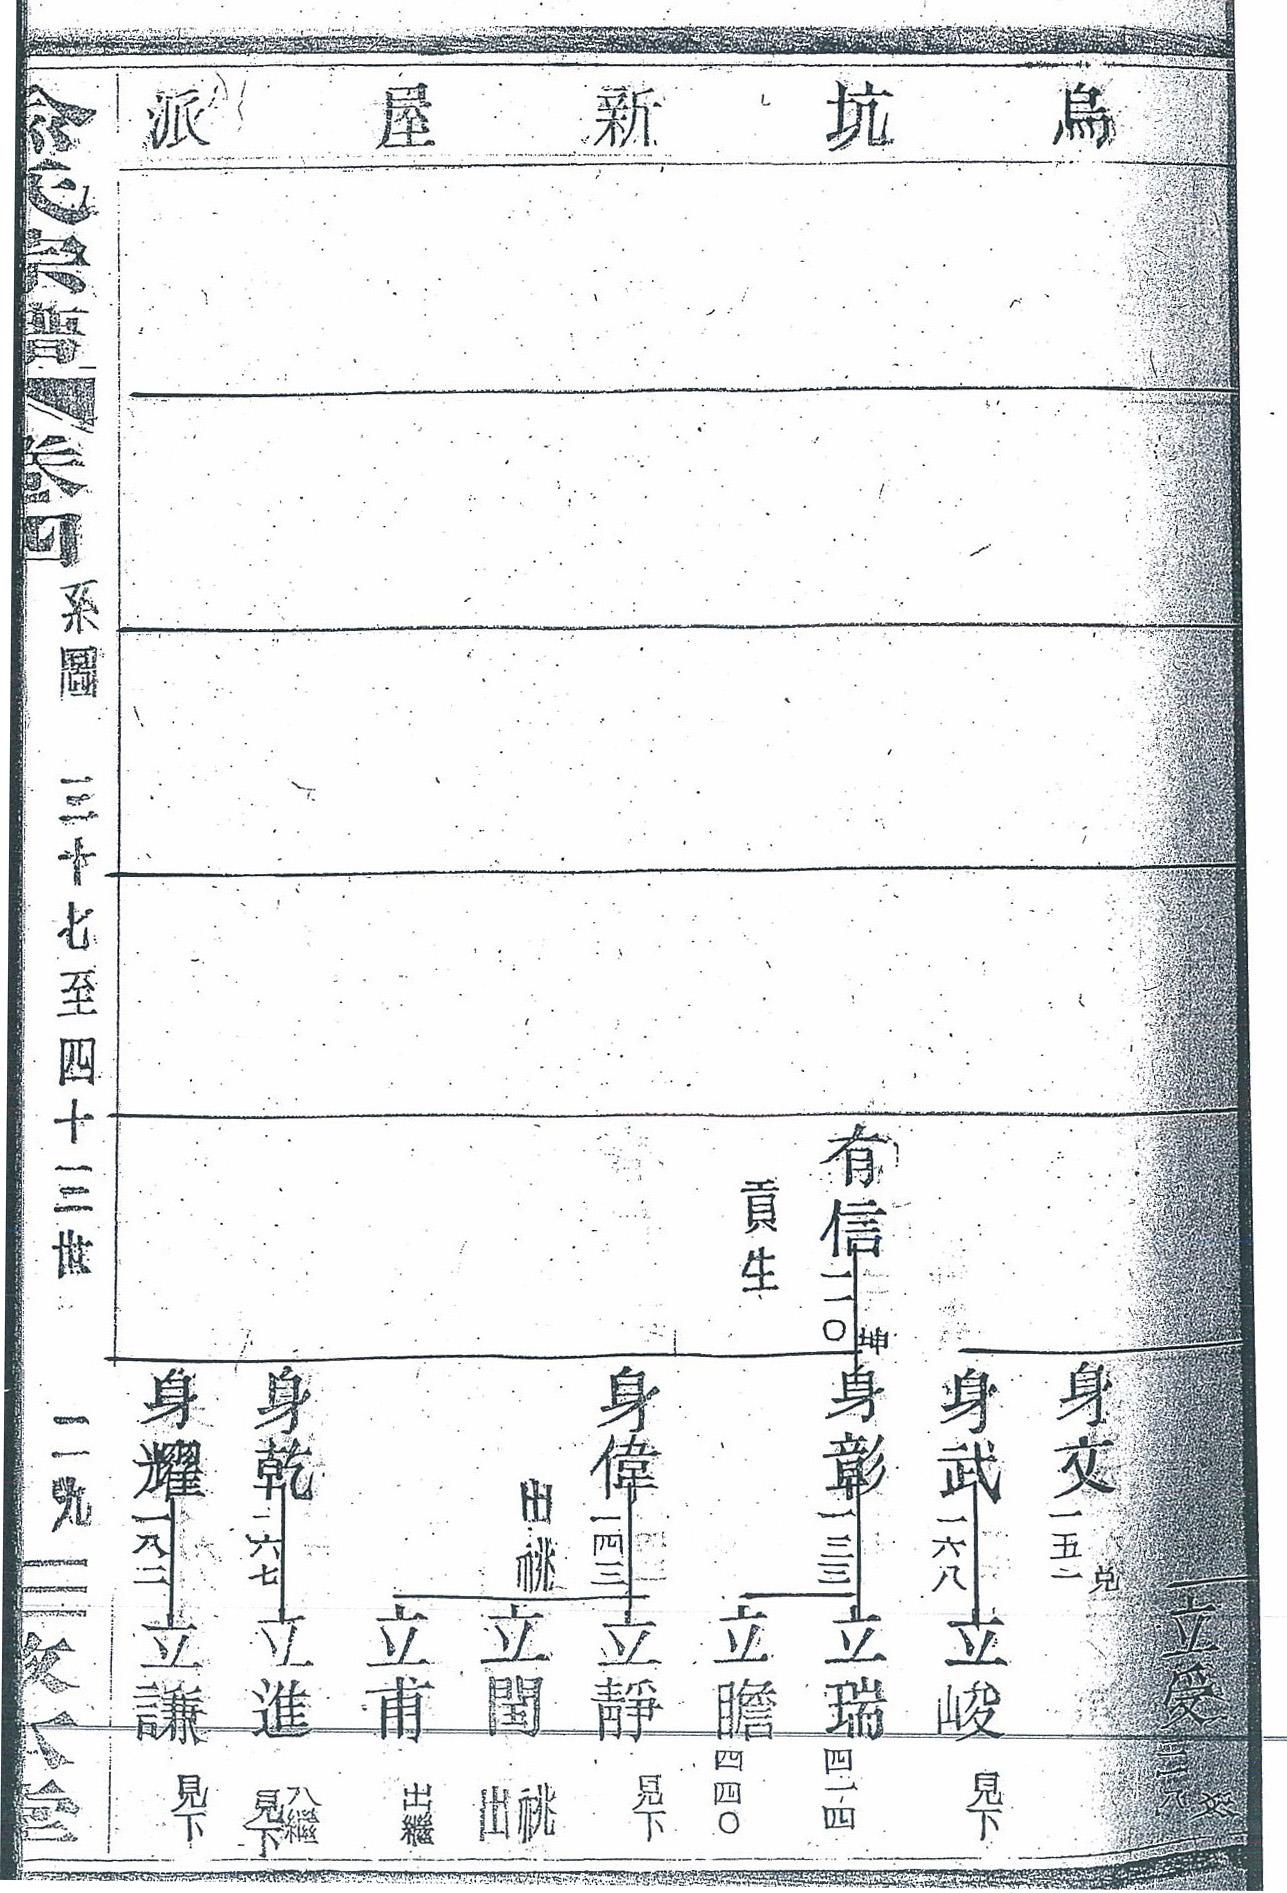 烏坑新屋派
有信 一一〇 坤
貢生
立愛
身文 一五一 兑
身武 一六八
立峻 見下
身彰 一三三
立瑞 四一四
立瞻 四四〇
身偉 一四三
出祧
立靜 見下
立閏 出祧
立甫 出繼
身乾 二六七
立進 入繼 見下
身耀 一八二
立謙 見下
俞氏宗譜 卷四 系圖 三十七至四十三世 二一九